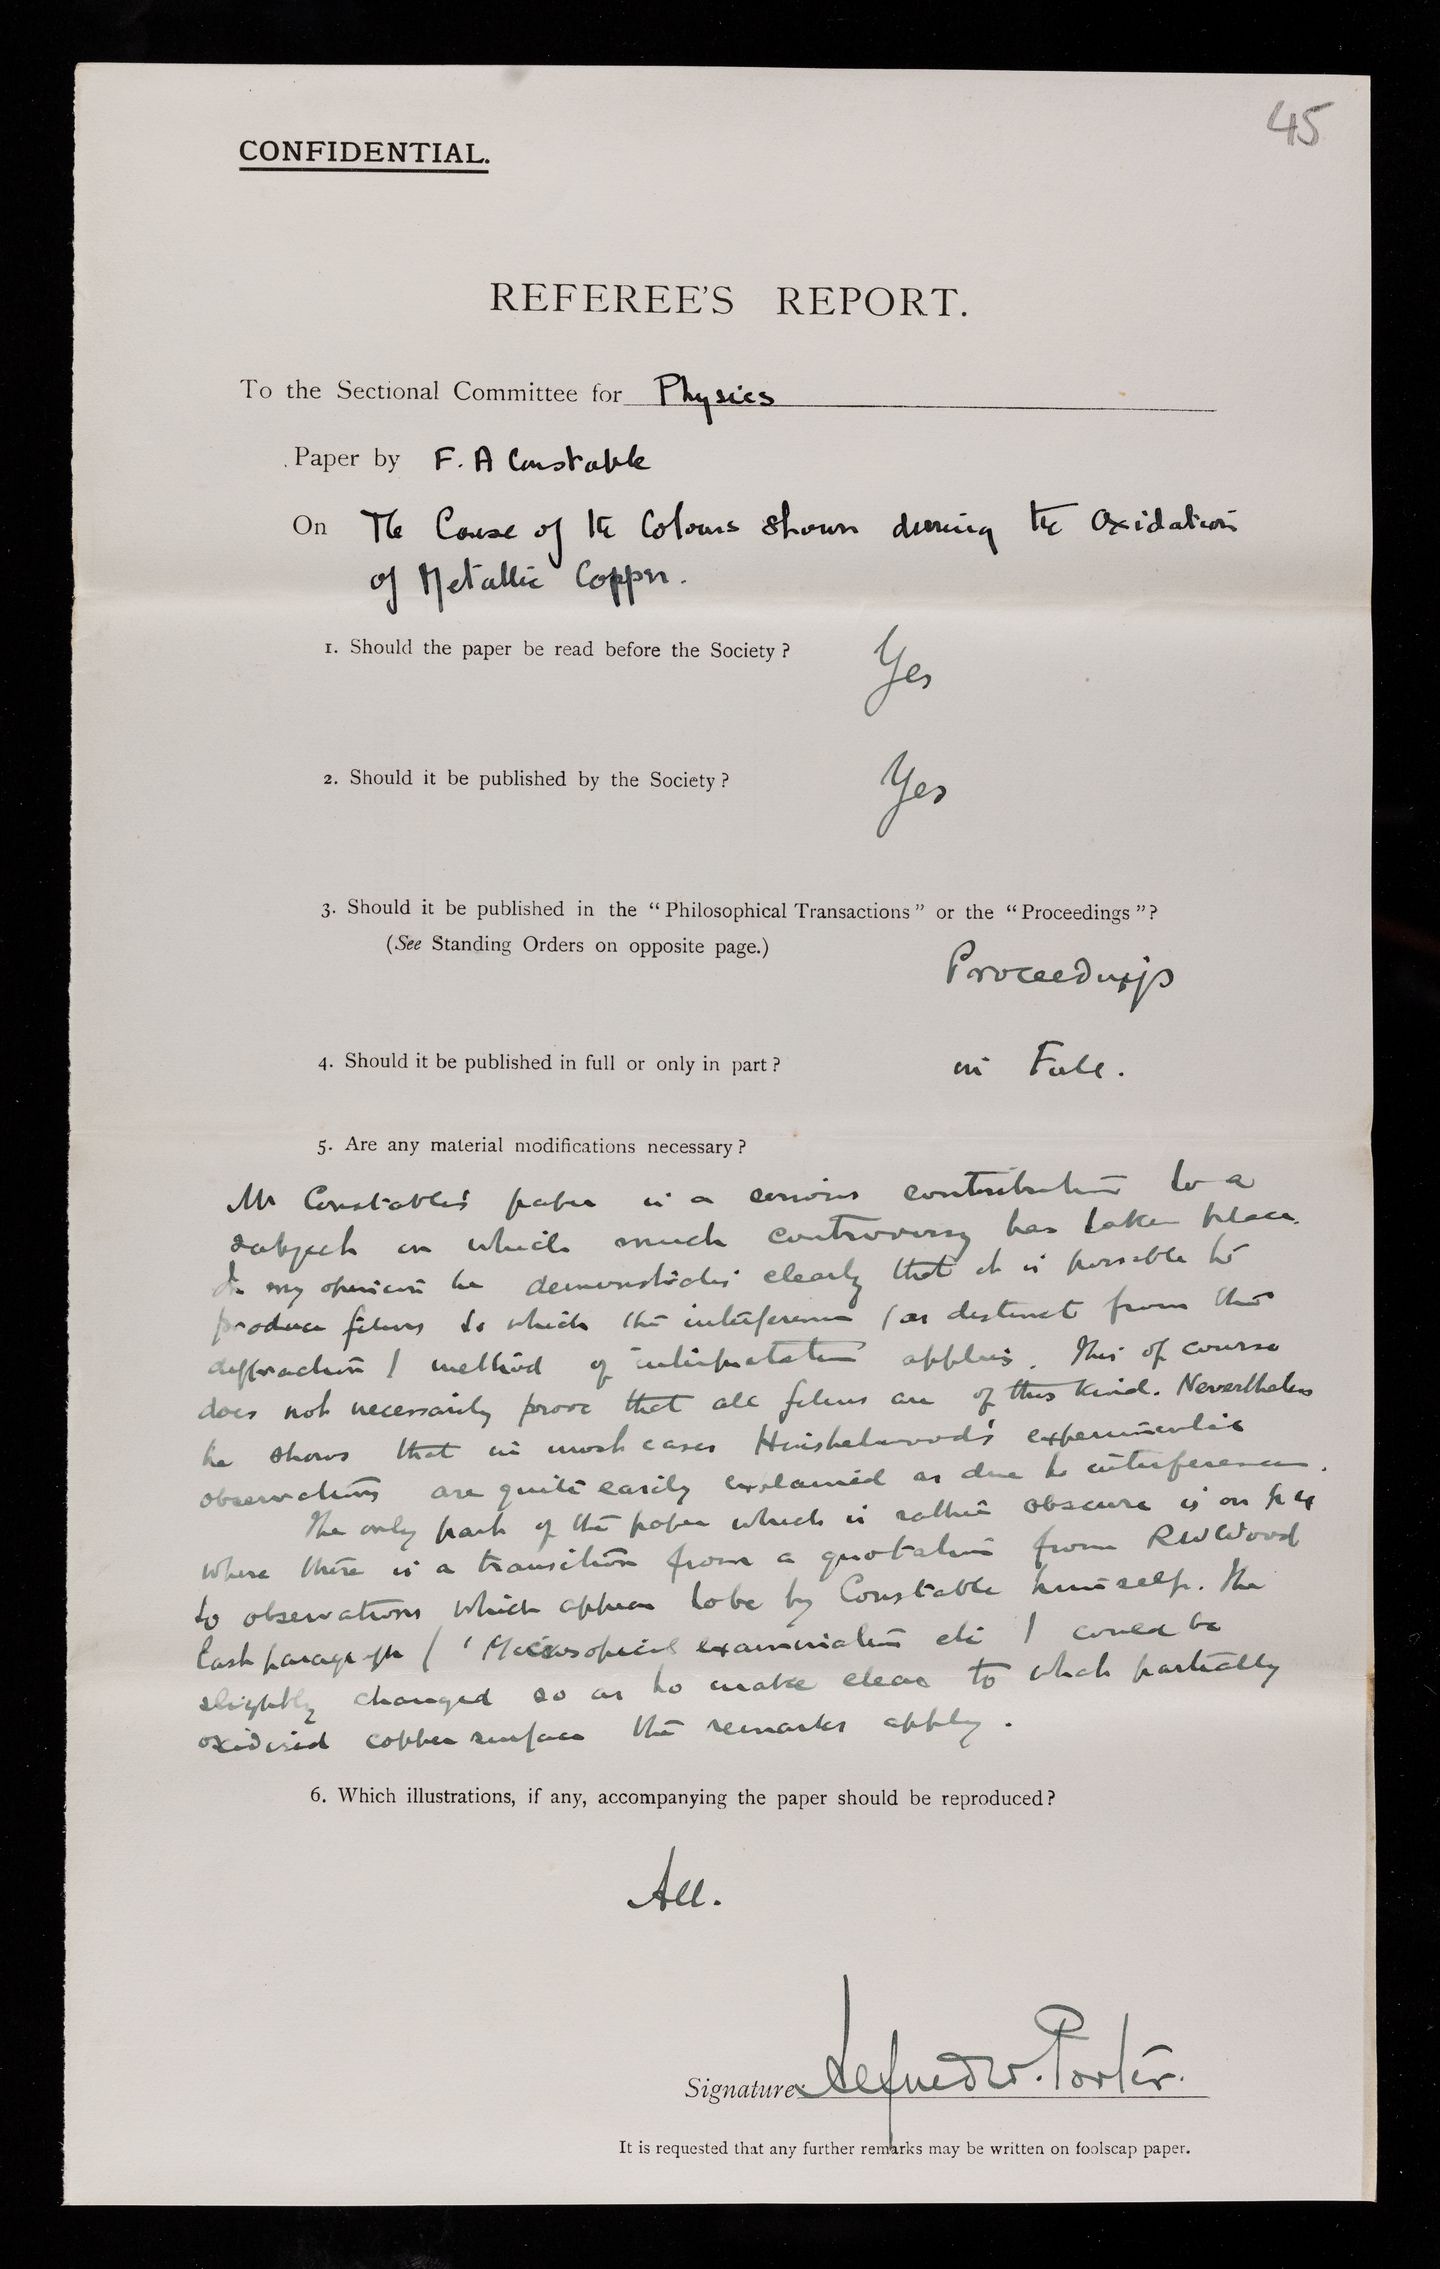 45
CONFIDENTIAL.
REFEREE'S REPORT.
To the Sectional Committee for Physics
Paper by F. A Constable
On The Cause of the Colours shown during the Oxidation
of Metallic Copper.
1. Should the paper be read before the Society?
Yes
2. Should it be published by the Society?
Yes
3. Should it be published in the "Philosophical Transactions" or the "Proceedings"?
(See Standing Orders on opposite page.)
Proceedings
4. Should it be published in full or only in part?
in Full.
5. Are any material modifications necessary?
Mr Constable's paper is a serious contribution to a
subject on which much controversy has taken place.
In my opinion he demonstrates clearly that it is possible to
produce films to which the interference (as distinct from the
diffraction) method of interpretation applies. This of course
does not necessarily prove that all films are of this kind. Nevertheless
he shows that in most cases Hinshelwood's experimental
observations are quite easily explained as due to interference.
The only part of the paper which is rather obscure is on
where there is a transition from a quotation from RW Wood
to observations which appear to be by Constable himself. The
last paragraph ('Microscopical examination etc) could be
slightly changed so as to make clear to which partially
oxidised copper surface the remarks apply.
6. Which illustrations, if any, accompanying the paper should be reproduced?
All.
Signature Alfred W. Porter.
It is requested that any further remarks may be written on foolscap paper.